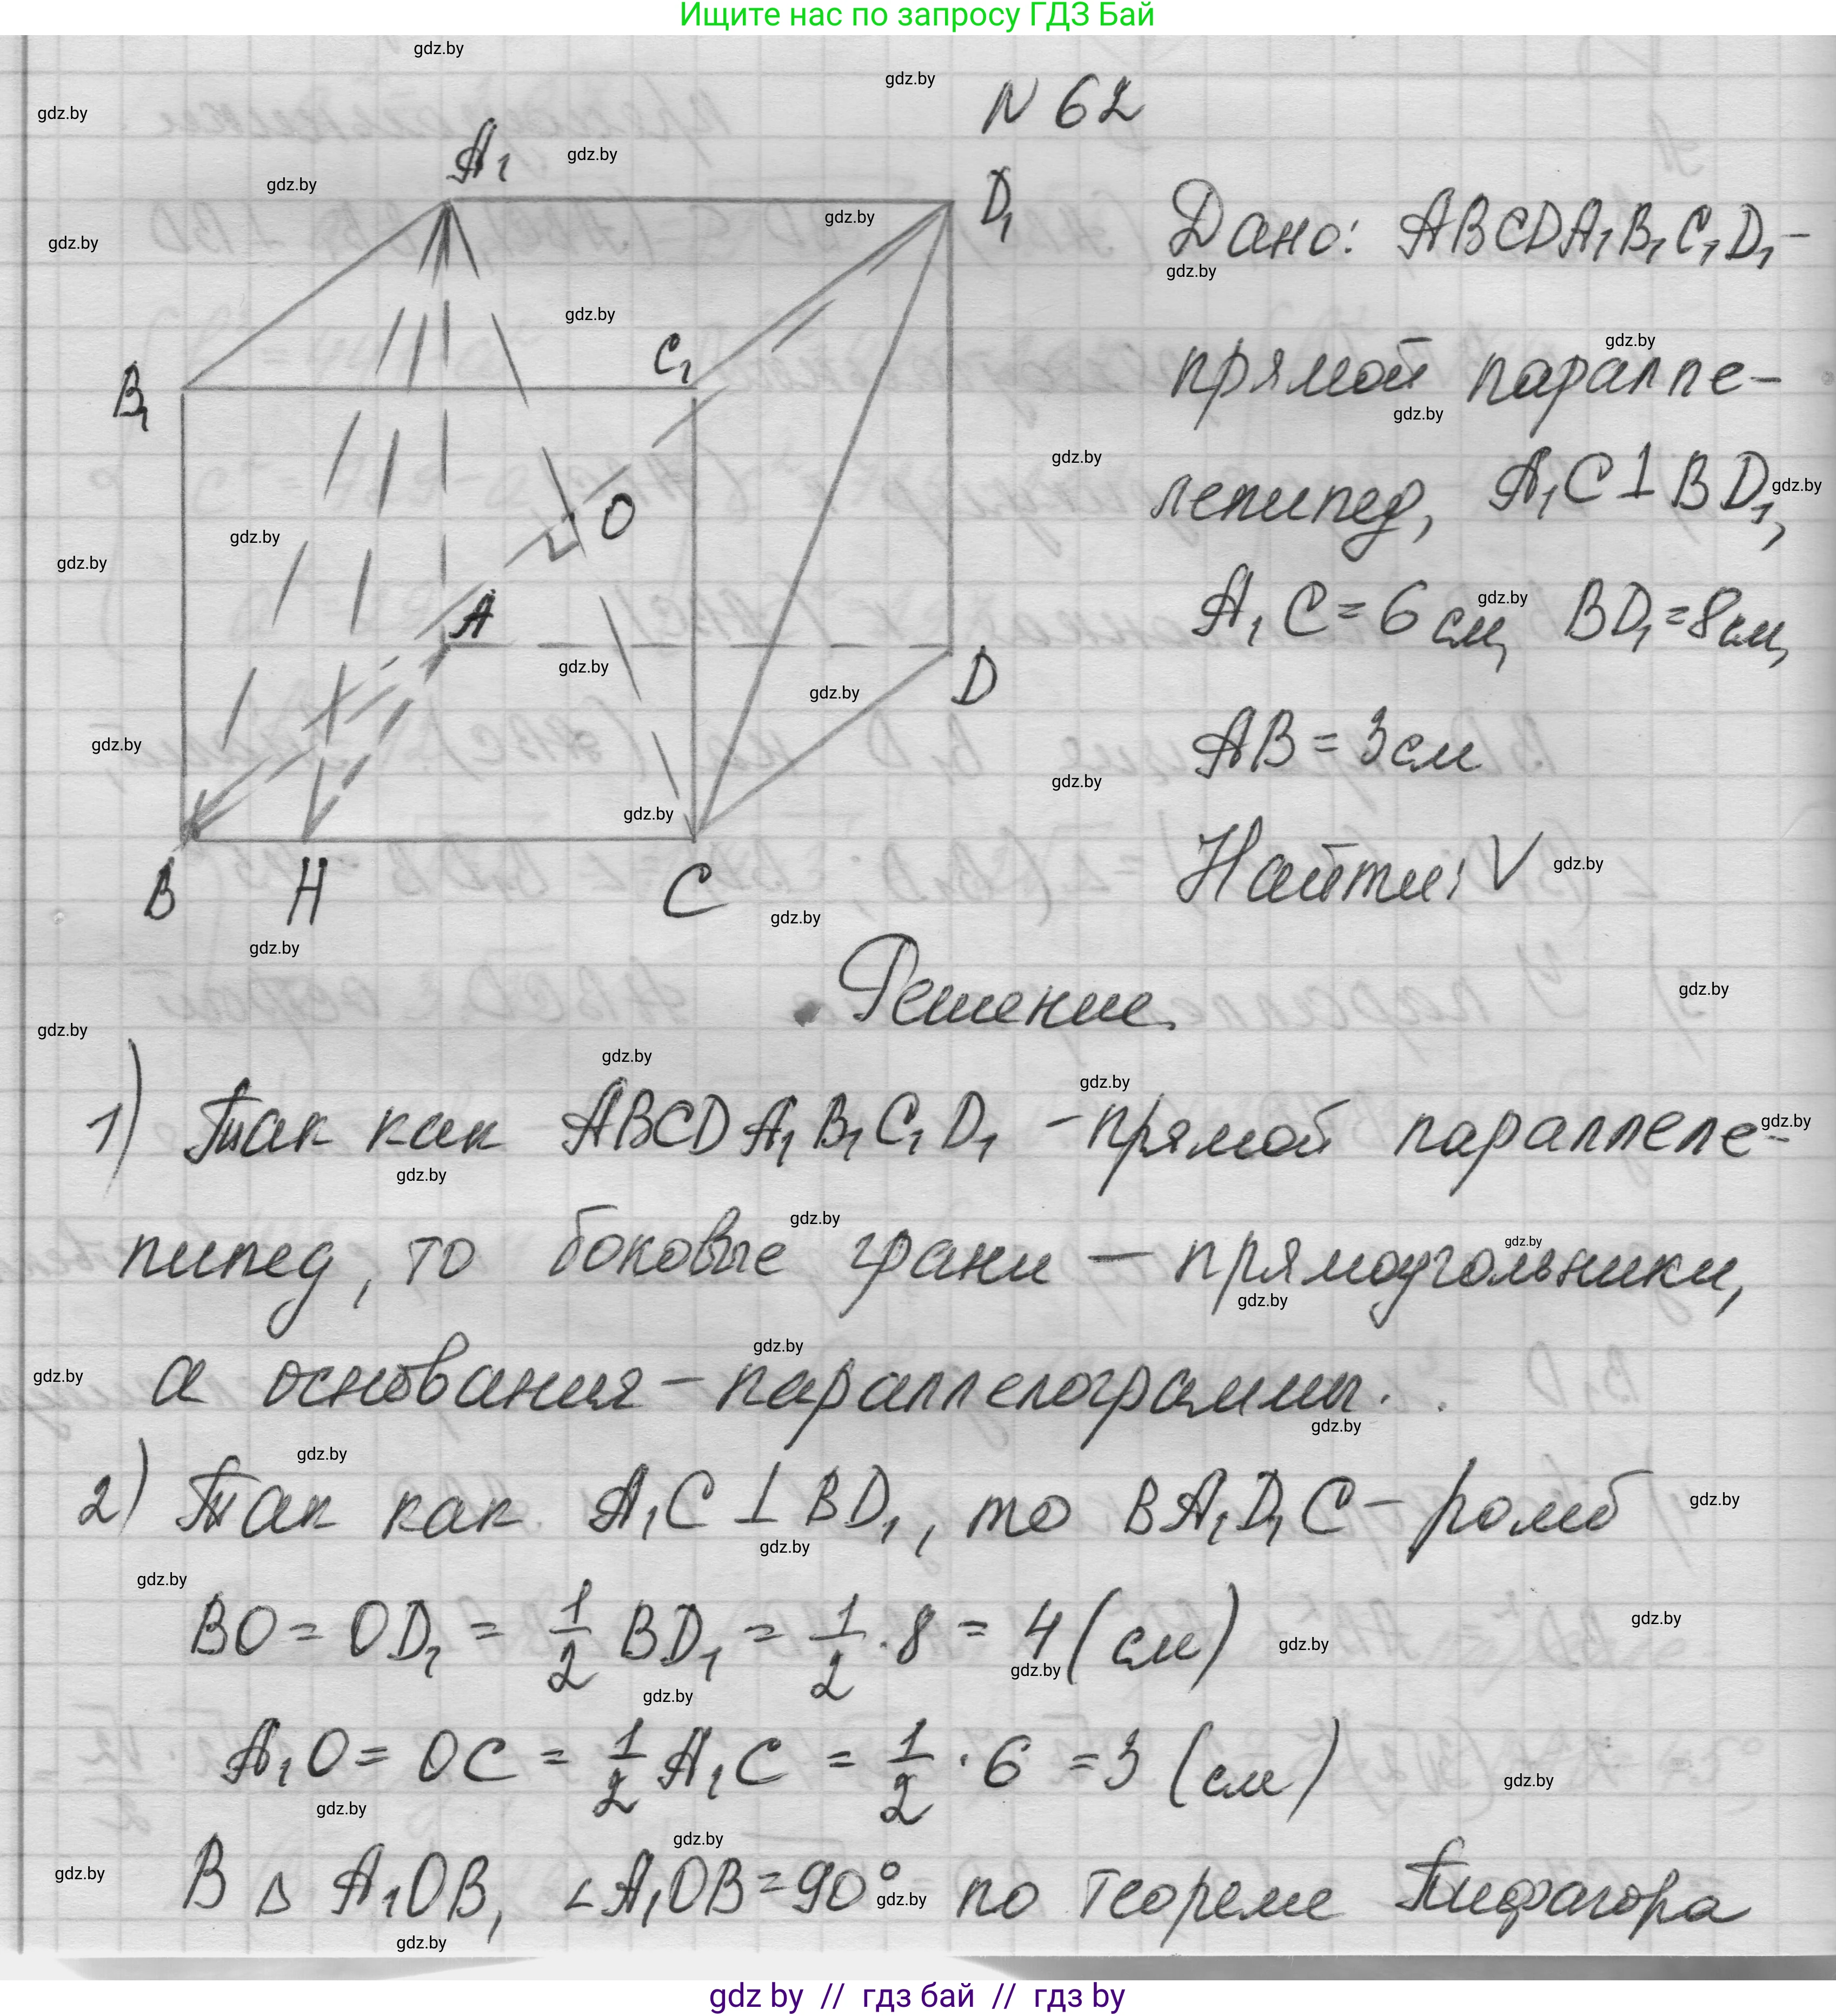 Ищите нас по запросу ГДЗ Бай
N 62
A₁
D₁
Дано: ABCDA₁B₁C₁D₁ -
прямой паралле-
B₁
C₁
лепипед, A₁C ⊥ BD₁,
O
A
A₁C = 6 см, BD₁ = 8 см,
D
AB = 3 см
B H C
Найти: V
Решение.
1) Так как ABCDA₁B₁C₁D₁ - прямой параллеле-
пипед, то боковые грани — прямоугольники,
а основания - параллелограммы.
2) Так как A₁C ⊥ BD₁, то BA₁D₁C - ромб
BO = OD₁ = 1/2 BD₁ = 1/2 · 8 = 4 (см)
A₁O = OC = 1/2 A₁C = 1/2 · 6 = 3 (см)
В △ A₁OB, ∠A₁OB = 90° по теореме Пифагора
gdz by // гдз бай // гдз by